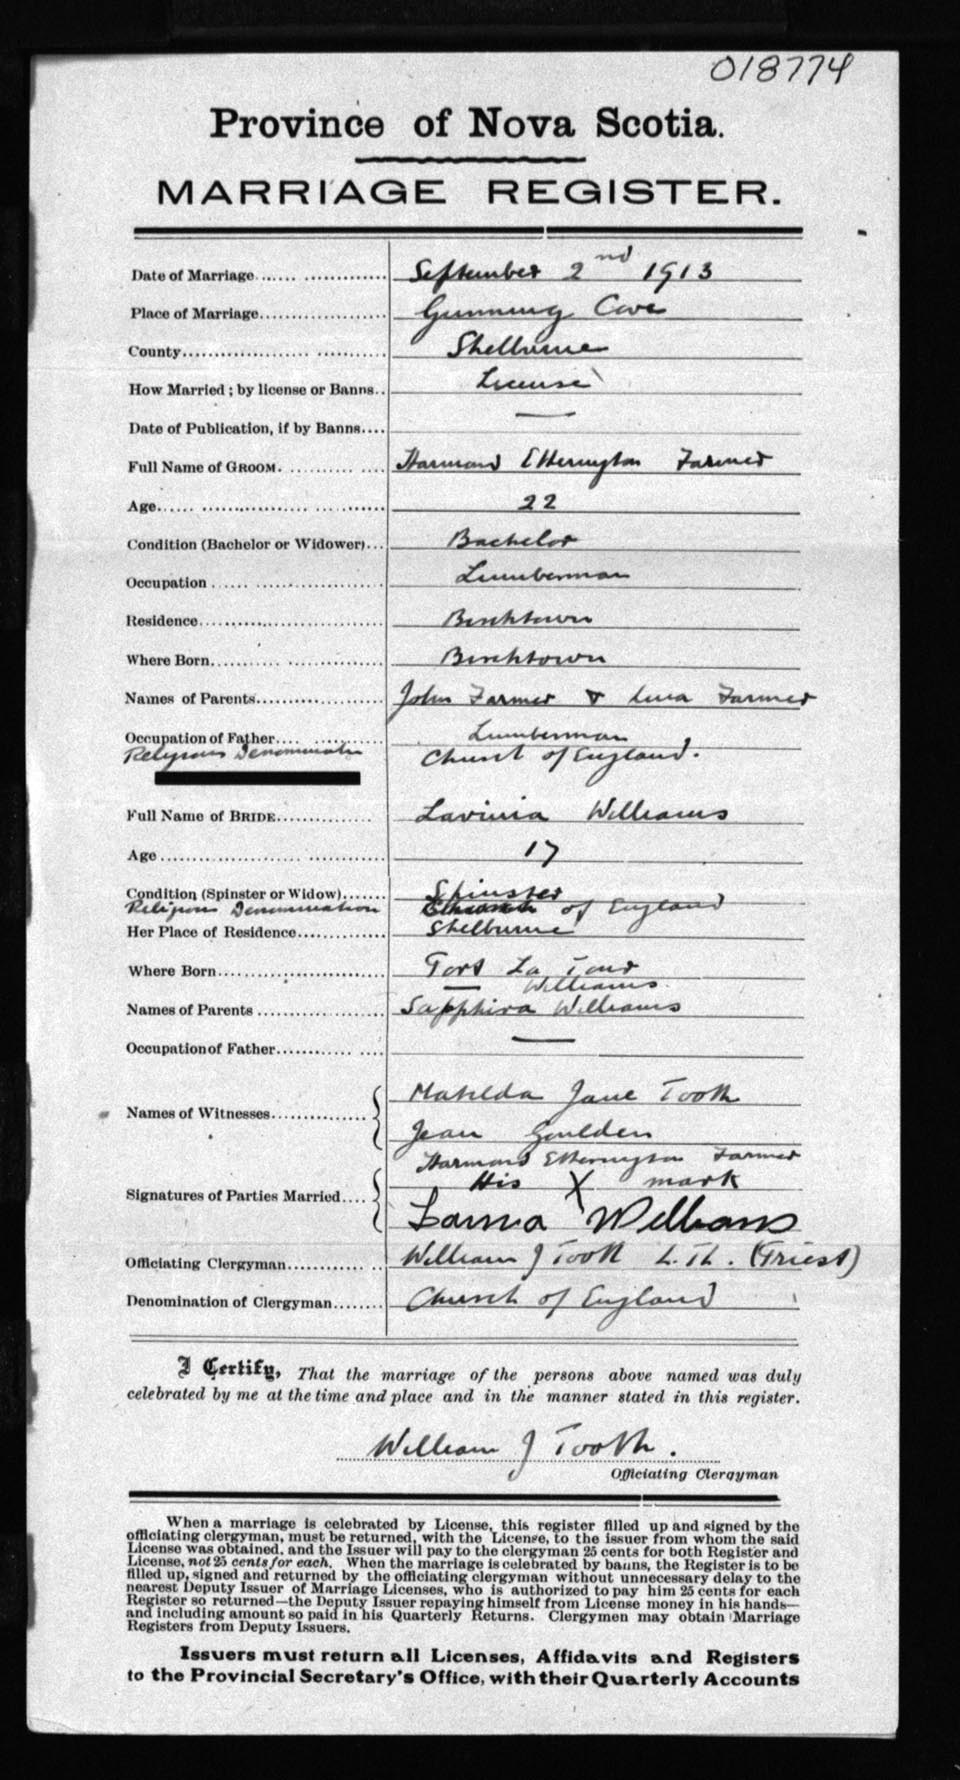 018774
Province of Nova Scotia.
MARRIAGE REGISTER.
Date of Marriage September 2nd 1913
Place of Marriage Gunning Cove
County Shelburne
How Married; by license or Banns License
Date of Publication, if by Banns —
Full Name of GROOM. Harmond Etherington Farmer
Age 22
Condition (Bachelor or Widower) Bachelor
Occupation Lumberman
Residence Birchtown
Where Born Birchtown
Names of Parents John Farmer & Farmer
Occupation of Father Lumberman
Religious Denomination Church of England.
Full Name of BRIDE Lavinia Williams
Age 17
Condition (Spinster or Widow) Spinster
Religious Denomination Church of England
Her Place of Residence Shelburne
Where Born Port La Tour
— Williams
Names of Parents Sapphira Williams
Occupation of Father —
Names of Witnesses Matilda Jane Tooth
Jean Goulden
Harmond Etherington Farmer
His X mark
Signatures of Parties Married
Williams
Officiating Clergyman William J Tooth L.Th. (Priest)
Denomination of Clergyman Church of England
I Certify, That the marriage of the persons above named was duly
celebrated by me at the time and place and in the manner stated in this register.
William J Tooth.
Officiating Clergyman
When a marriage is celebrated by License, this register filled up and signed by the
officiating clergyman, must be returned, with the License, to the issuer from whom the said
License was obtained, and the Issuer will pay to the clergyman 25 cents for both Register and
License, not 25 cents for each. When the marriage is celebrated by banns, the Register is to be
filled up, signed and returned by the officiating clergyman without unnecessary delay to the
nearest Deputy Issuer of Marriage Licenses, who is authorized to pay him 25 cents for each
Register so returned—the Deputy Issuer repaying himself from License money in his hands—
and including amount so paid in his Quarterly Returns. Clergymen may obtain Marriage
Registers from Deputy Issuers.
Issuers must return all Licenses, Affidavits and Registers
to the Provincial Secretary's Office, with their Quarterly Accounts